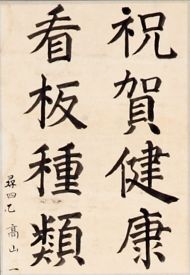 祝賀健康
看板種類
尋四乙 高山一